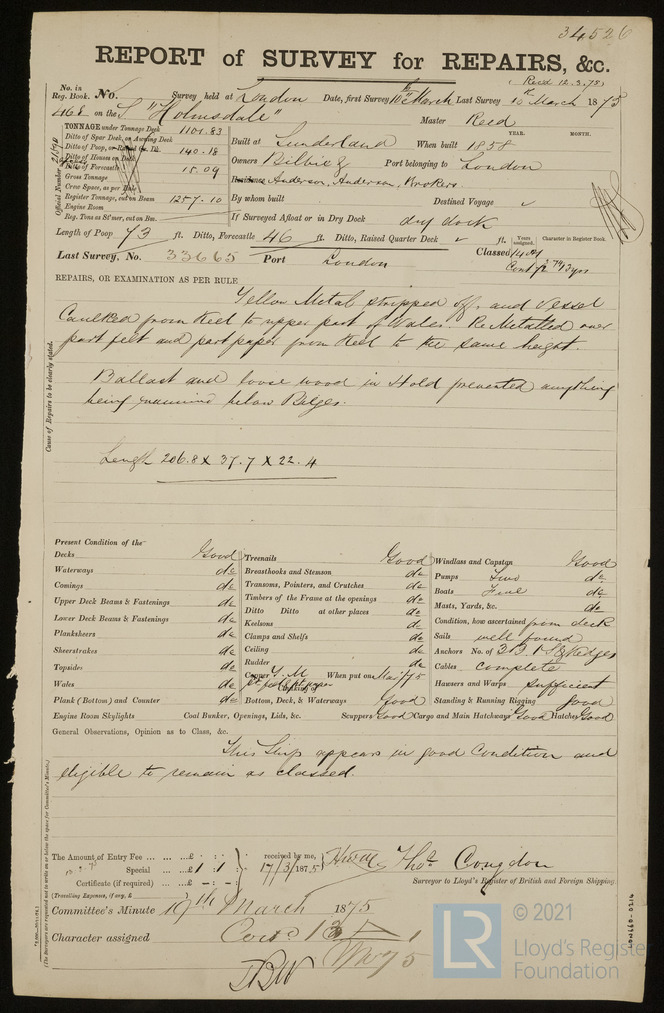 34526
REPORT of SURVEY for REPAIRS, &c.
(Recd 12.3.75)
No. in Reg. Book. No. Survey held at London Date, first Survey 10th March Last Survey 10th March 1875
468 on the S "Holmsdale" Master Reed
TONNAGE under Tonnage Deck 1101.83
Ditto of Spar Deck, or Awning Deck
Ditto of Poop, or Raised Qr. Dk. 140.18
Ditto of Houses on Deck
Ditto of Forecastle 15.09
Gross Tonnage
Crew Space, as per Rule
Register Tonnage, cut on Beam 1257.10
Engine Room
Reg. Tons as St'mer, cut on Bm.
Official Number
YEAR. MONTH.
Built at Sunderland When built 1858
Owners Bilbie & Port belonging to London
Residence Anderson, Anderson, Brokers.
By whom built Destined Voyage ✓
If Surveyed Afloat or in Dry Dock dry dock
Length of Poop 73 ft. Ditto, Forecastle 46 ft. Ditto, Raised Quarter Deck ✓ ft.
Years assigned. Character in Register Book.
Last Survey, No. 33665 Port London Classed
REPAIRS, OR EXAMINATION AS PER RULE
Yellow Metal stripped off, and Vessel
Caulked from Keel to upper part of Wales. ReMetalled over
part felt and part paper from Keel to the same height.
Ballast and loose wood in Hold prevented anything
being examined below Bilges.
Length 206.8 x 37.7 x 22.4
Cause of Repairs to be clearly stated.
Present Condition of the—
Decks Good
Waterways do
Comings do
Upper Deck Beams & Fastenings do
Lower Deck Beams & Fastenings do
Planksheers do
Sheerstrakes do
Topsides do
Wales do
Plank (Bottom) and Counter do
Treenails Good
Breasthooks and Stemson do
Transoms, Pointers, and Crutches do
Timbers of the Frame at the openings do
Ditto Ditto at other places do
Keelsons do
Clamps and Shelfs do
Ceiling do
Rudder do
Copper Y.M. When put on Mar/75
Caulking of
Bottom, Deck, & Waterways Good
Windlass and Capstan Good
Pumps Two do
Boats Five do
Masts, Yards, &c. do
Condition, how ascertained from deck
Sails well found
Anchors No. of 3 B 1 S 2 Kedges
Cables complete
Hawsers and Warps sufficient
Standing & Running Rigging good
Engine Room Skylights Coal Bunker, Openings, Lids, &c. Scuppers Good Cargo and Main Hatchways Good Hatches Good
General Observations, Opinion as to Class, &c.
This Ship appears in good Condition and
eligible to remain as classed.
The Amount of Entry Fee ... ... ...£ : :
Special ... ...£ 1 : 1 :
Certificate (if required) ... ...£ – : – :
(Travelling Expenses, if any, £ )
received by me, 17/3/1875
Thos. Congdon
Surveyor to Lloyd's Register of British and Foreign Shipping.
Committee's Minute 19th March 1875
Character assigned Contd
(The Surveyors are requested not to write on or below the space for Committee's Minute.)
© 2021
LR
Lloyd's Register
Foundation